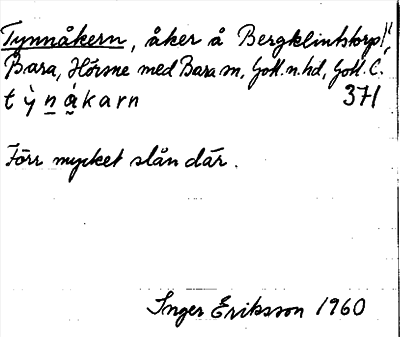 Tynnåkern, åker å Bergklintstorp 1/1,
Bara, Hörsne med Bara sn, Gotl. n. hd, Gotl. C.
t ỳ n å̀ k a r n 371
Förr mycket slån där.
Inger Eriksson 1960